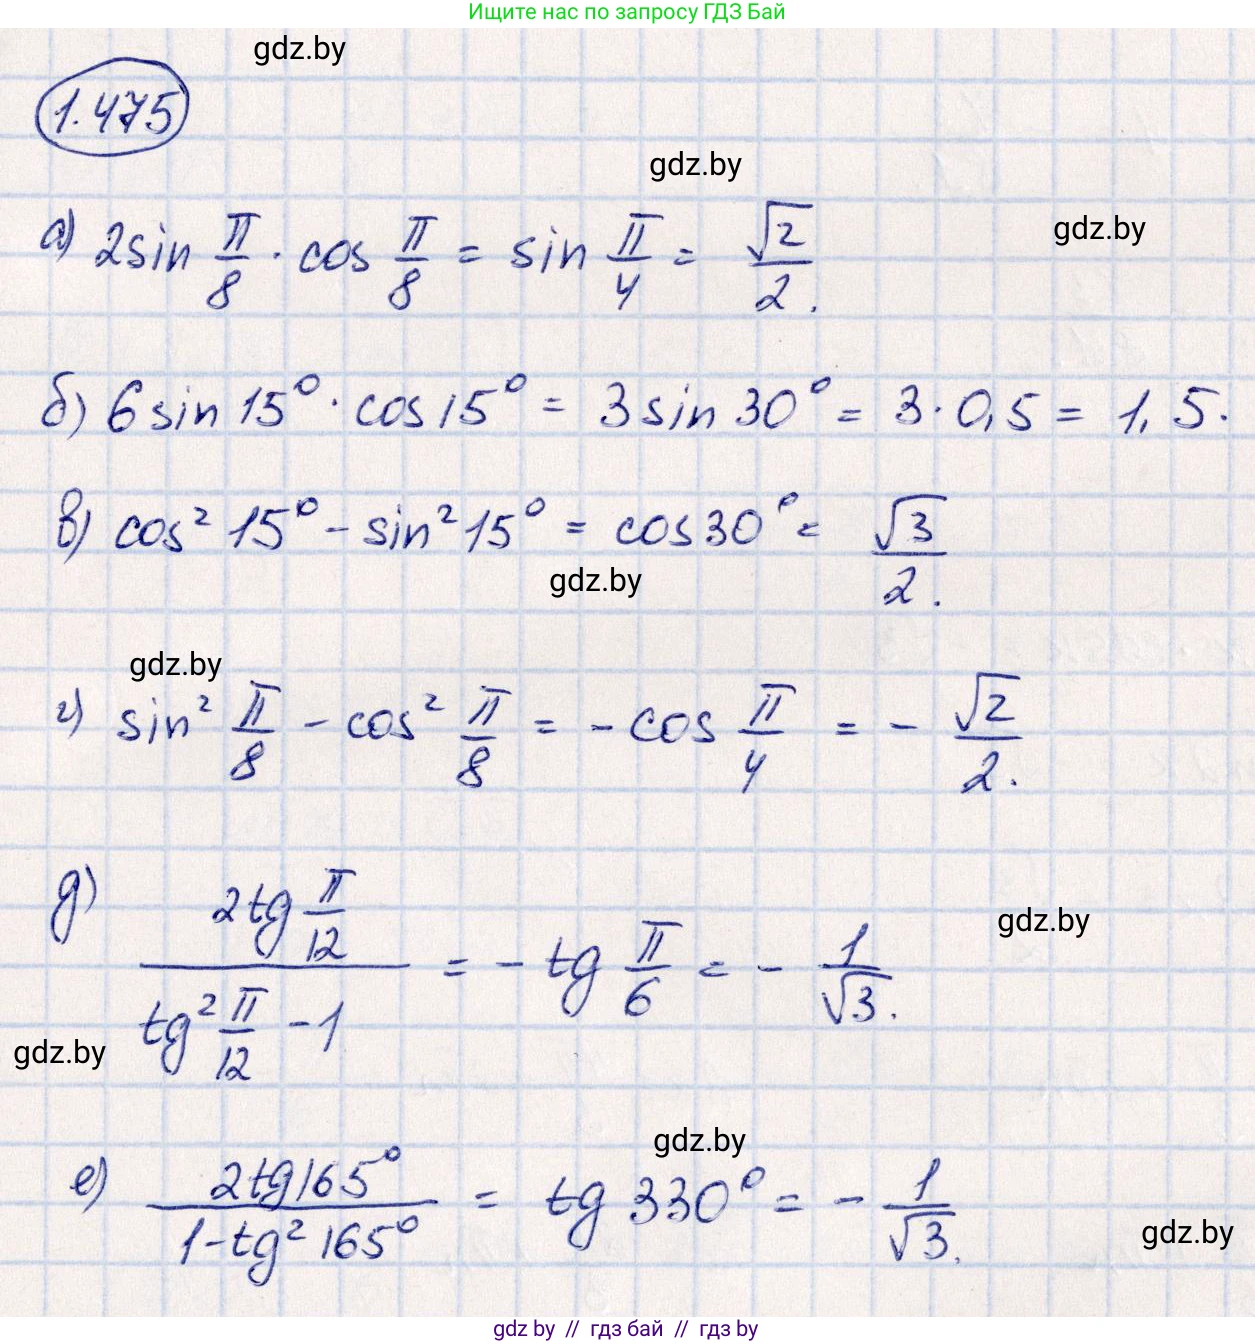 Ищите нас по запросу ГДЗ Бай
gdz.by
1.475
gdz.by
gdz.by
а) 2sin π/8 · cos π/8 = sin π/4 = √2/2.
б) 6 sin 15° · cos 15° = 3 sin 30° = 3 · 0,5 = 1,5.
в) cos² 15° – sin² 15° = cos 30° = √3/2.
gdz.by
gdz.by
г) sin² π/8 – cos² π/8 = – cos π/4 = – √2/2.
д) 2tg π/12 / tg² π/12 – 1 = – tg π/6 = – 1/√3.
gdz.by
gdz.by
gdz.by
е) 2tg 165° / 1 – tg² 165° = tg 330° = – 1/√3.
gdz.by
gdz.by // гдз бай // гдз by